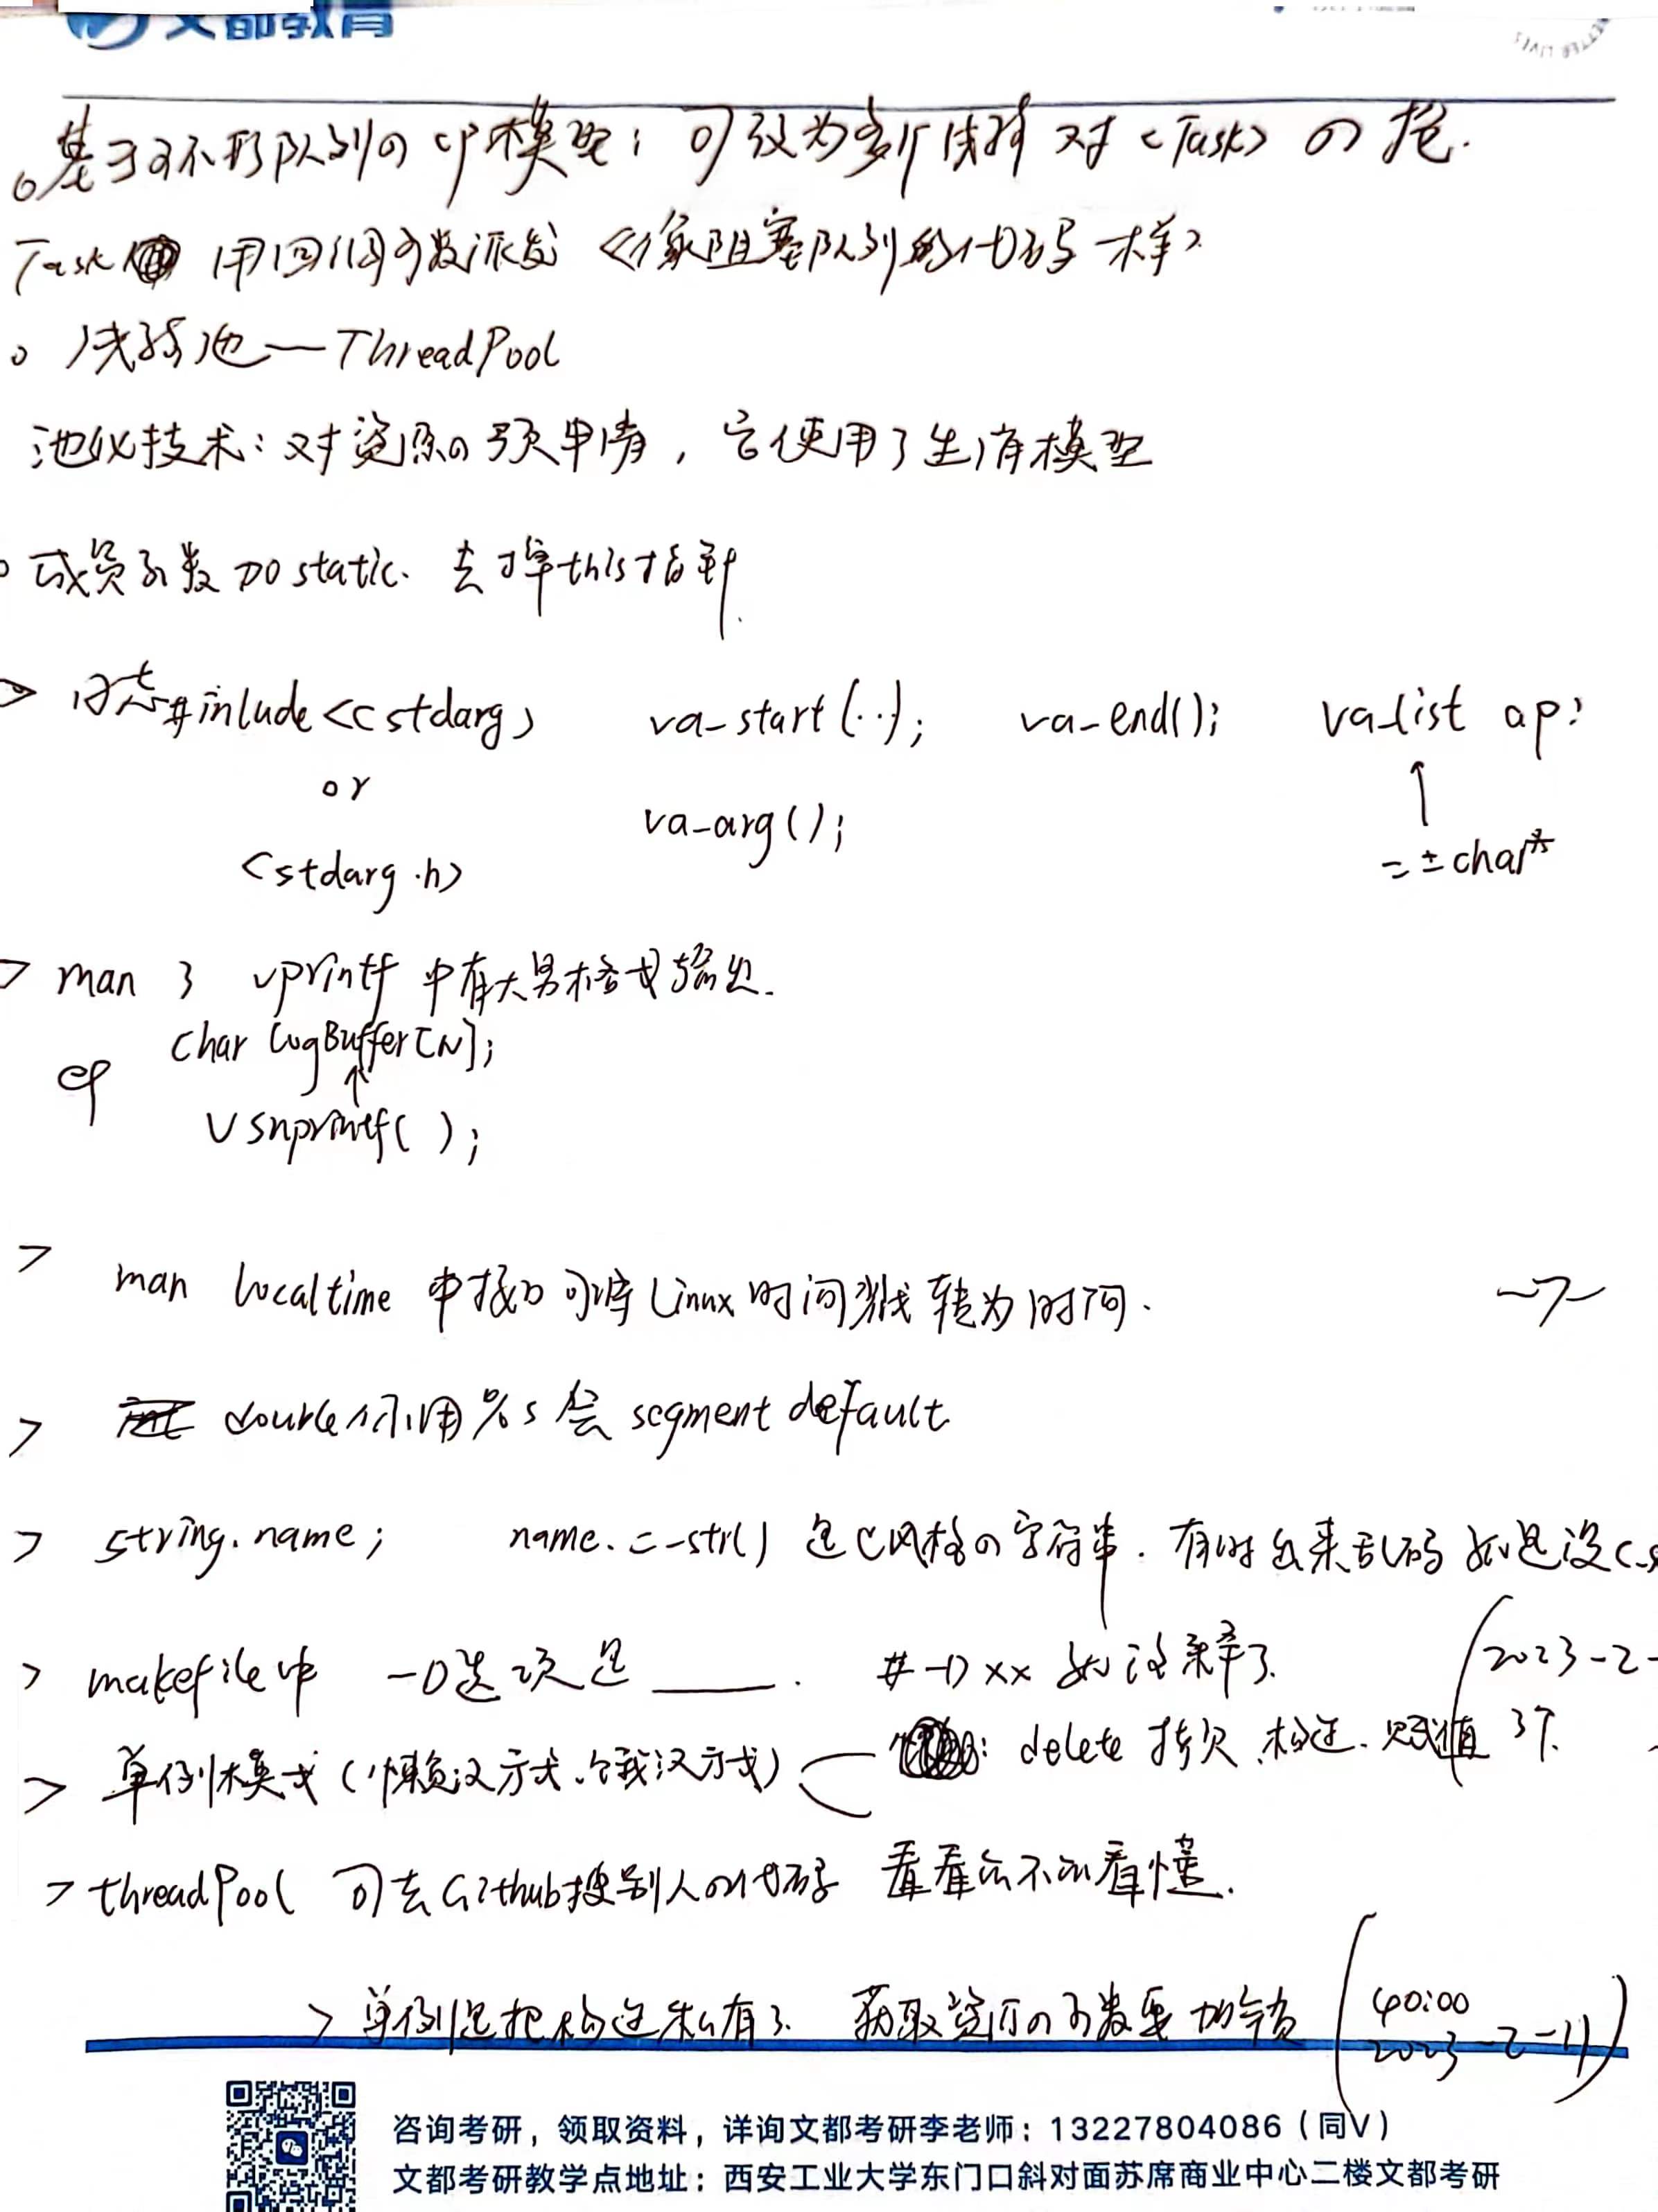 文都教育
。基于环形队列の cp模型：可改为多个线程 对<Task>の抢.
Task 用回调函数派发 《像阻塞队列的代码一样》
。线程池—ThreadPool
池化技术：对资源の预申请，它使用了生产模型
。成员函数加static. 去掉this指针.
> #inlude<cstdarg> va_start(..); va_end(); va_list ap;
or
va_arg();
<stdarg.h> char*
> man 3 vprintf 中有大量格式输出.
char logBuffer[N];
↑
vsnprintf( );
> man localtime 中接口可将Linux时间戳转为时间.
> double 用%s会 segment default
> string.name; name.c_str() 是C风格の字符串. 有时出来乱码 就是没c_s
> makefile中 -D选项是____. #-Dxx 就注释了. (2023-2-
> 单例模式(懒汉方式、饿汉方式) : delete 拷贝、构造、赋值 3个.
> threadPool 可去Github搜别人の代码 看看能不能看懂.
> 单例是把构造私有了. 获取资源の函数要加锁 (40:00
2023-2-11)
咨询考研，领取资料，详询文都考研李老师：13227804086（同V）
文都考研教学点地址：西安工业大学东门口斜对面苏席商业中心二楼文都考研